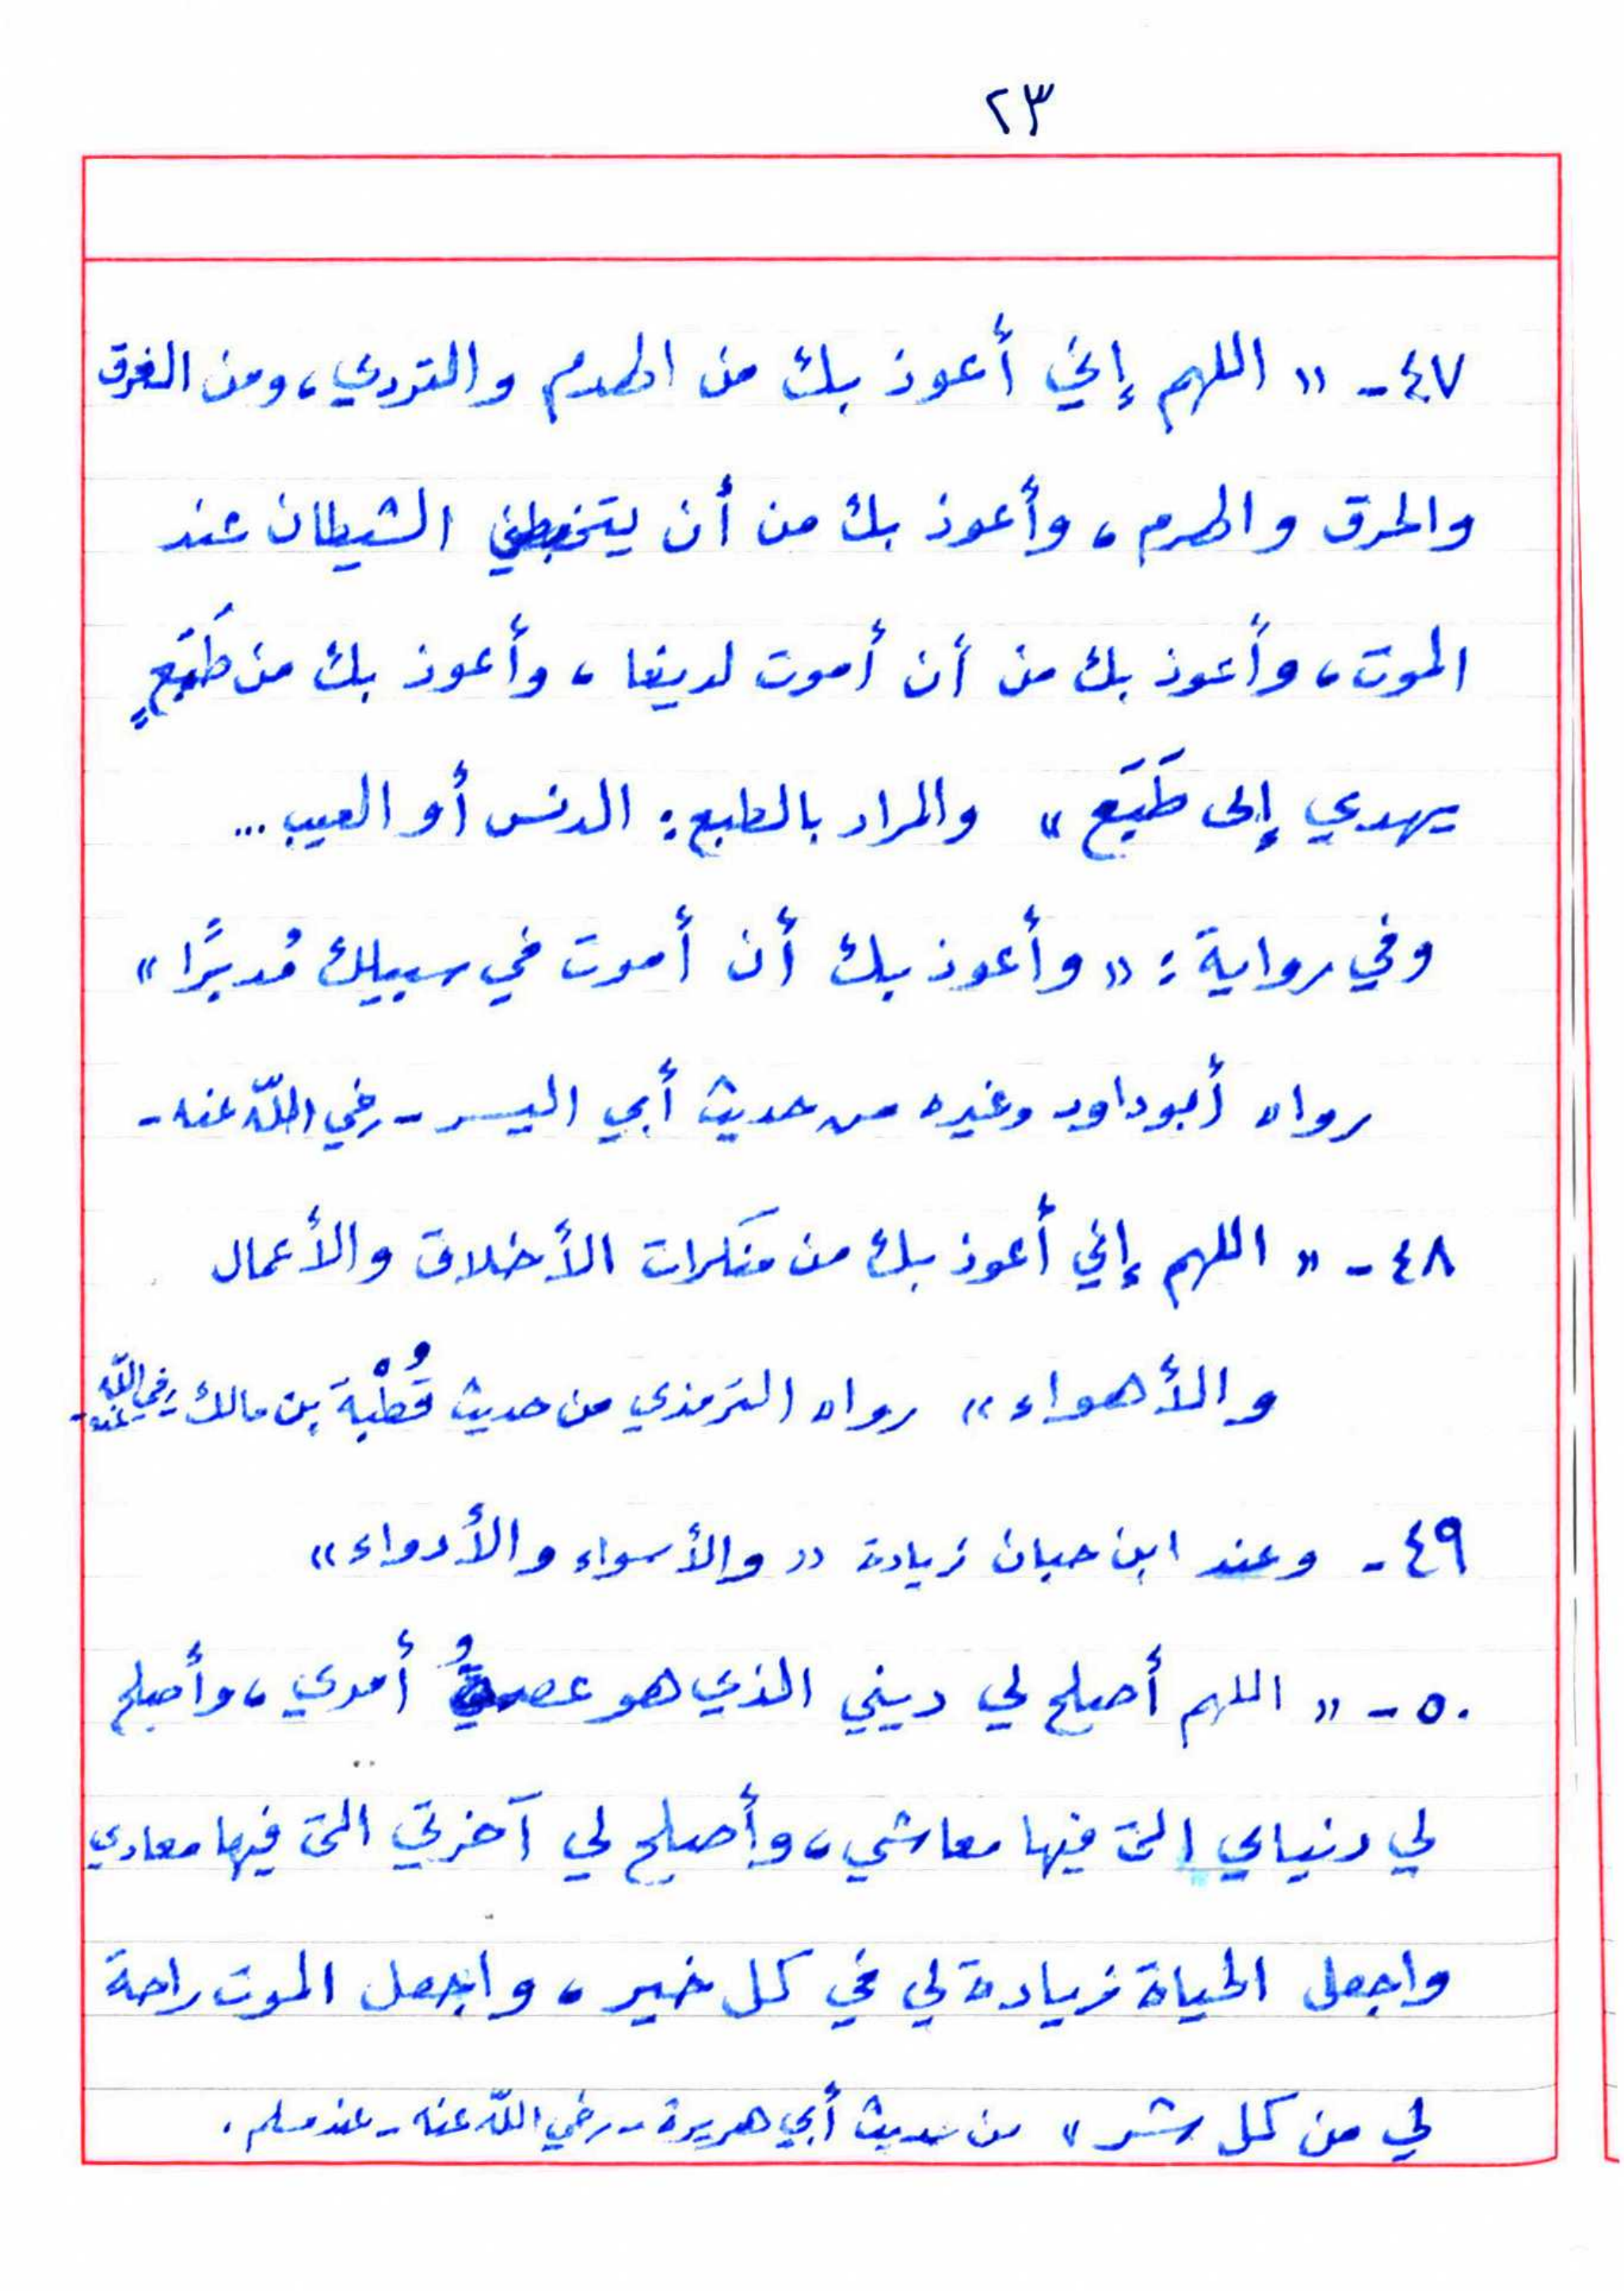 ٢٣
٤٧- « اللهم إني أعوذ بك من الهدم والتردي، ومن الغرق
والحرق والهرم، وأعوذ بك من أن يتخبطني الشيطان عند
الموت، وأعوذ بك من أن أموت لديغا، وأعوذ بك من طَبَعٍ
يهدي إلى طَبَع » والمراد بالطبع: الدنس أو العيب ...
وفي رواية: « وأعوذ بك أن أموت في سبيلك مُدبرًا »
رواه أبو داود وغيره من حديث أبي اليسر - رضي اللّه عنه -
٤٨- « اللهم إني أعوذ بك من منكرات الأخلاق والأعمال
والأهواء » رواه الترمذي من حديث قُطْبة بن مالك - رضي اللّه عنه -
٤٩- وعند ابن حبان زيادة « والأسواء والأدواء »
٥٠- « اللهم أصلح لي ديني الذي هو عصمةُ أمري، وأصلح
لي دنياي التي فيها معاشي، وأصلح لي آخرتي التي فيها معادي
واجعل الحياة زيادة لي في كل خير، واجعل الموت راحة
لي من كل شر » من حديث أبي هريرة - رضي اللّه عنه - عند مسلم .